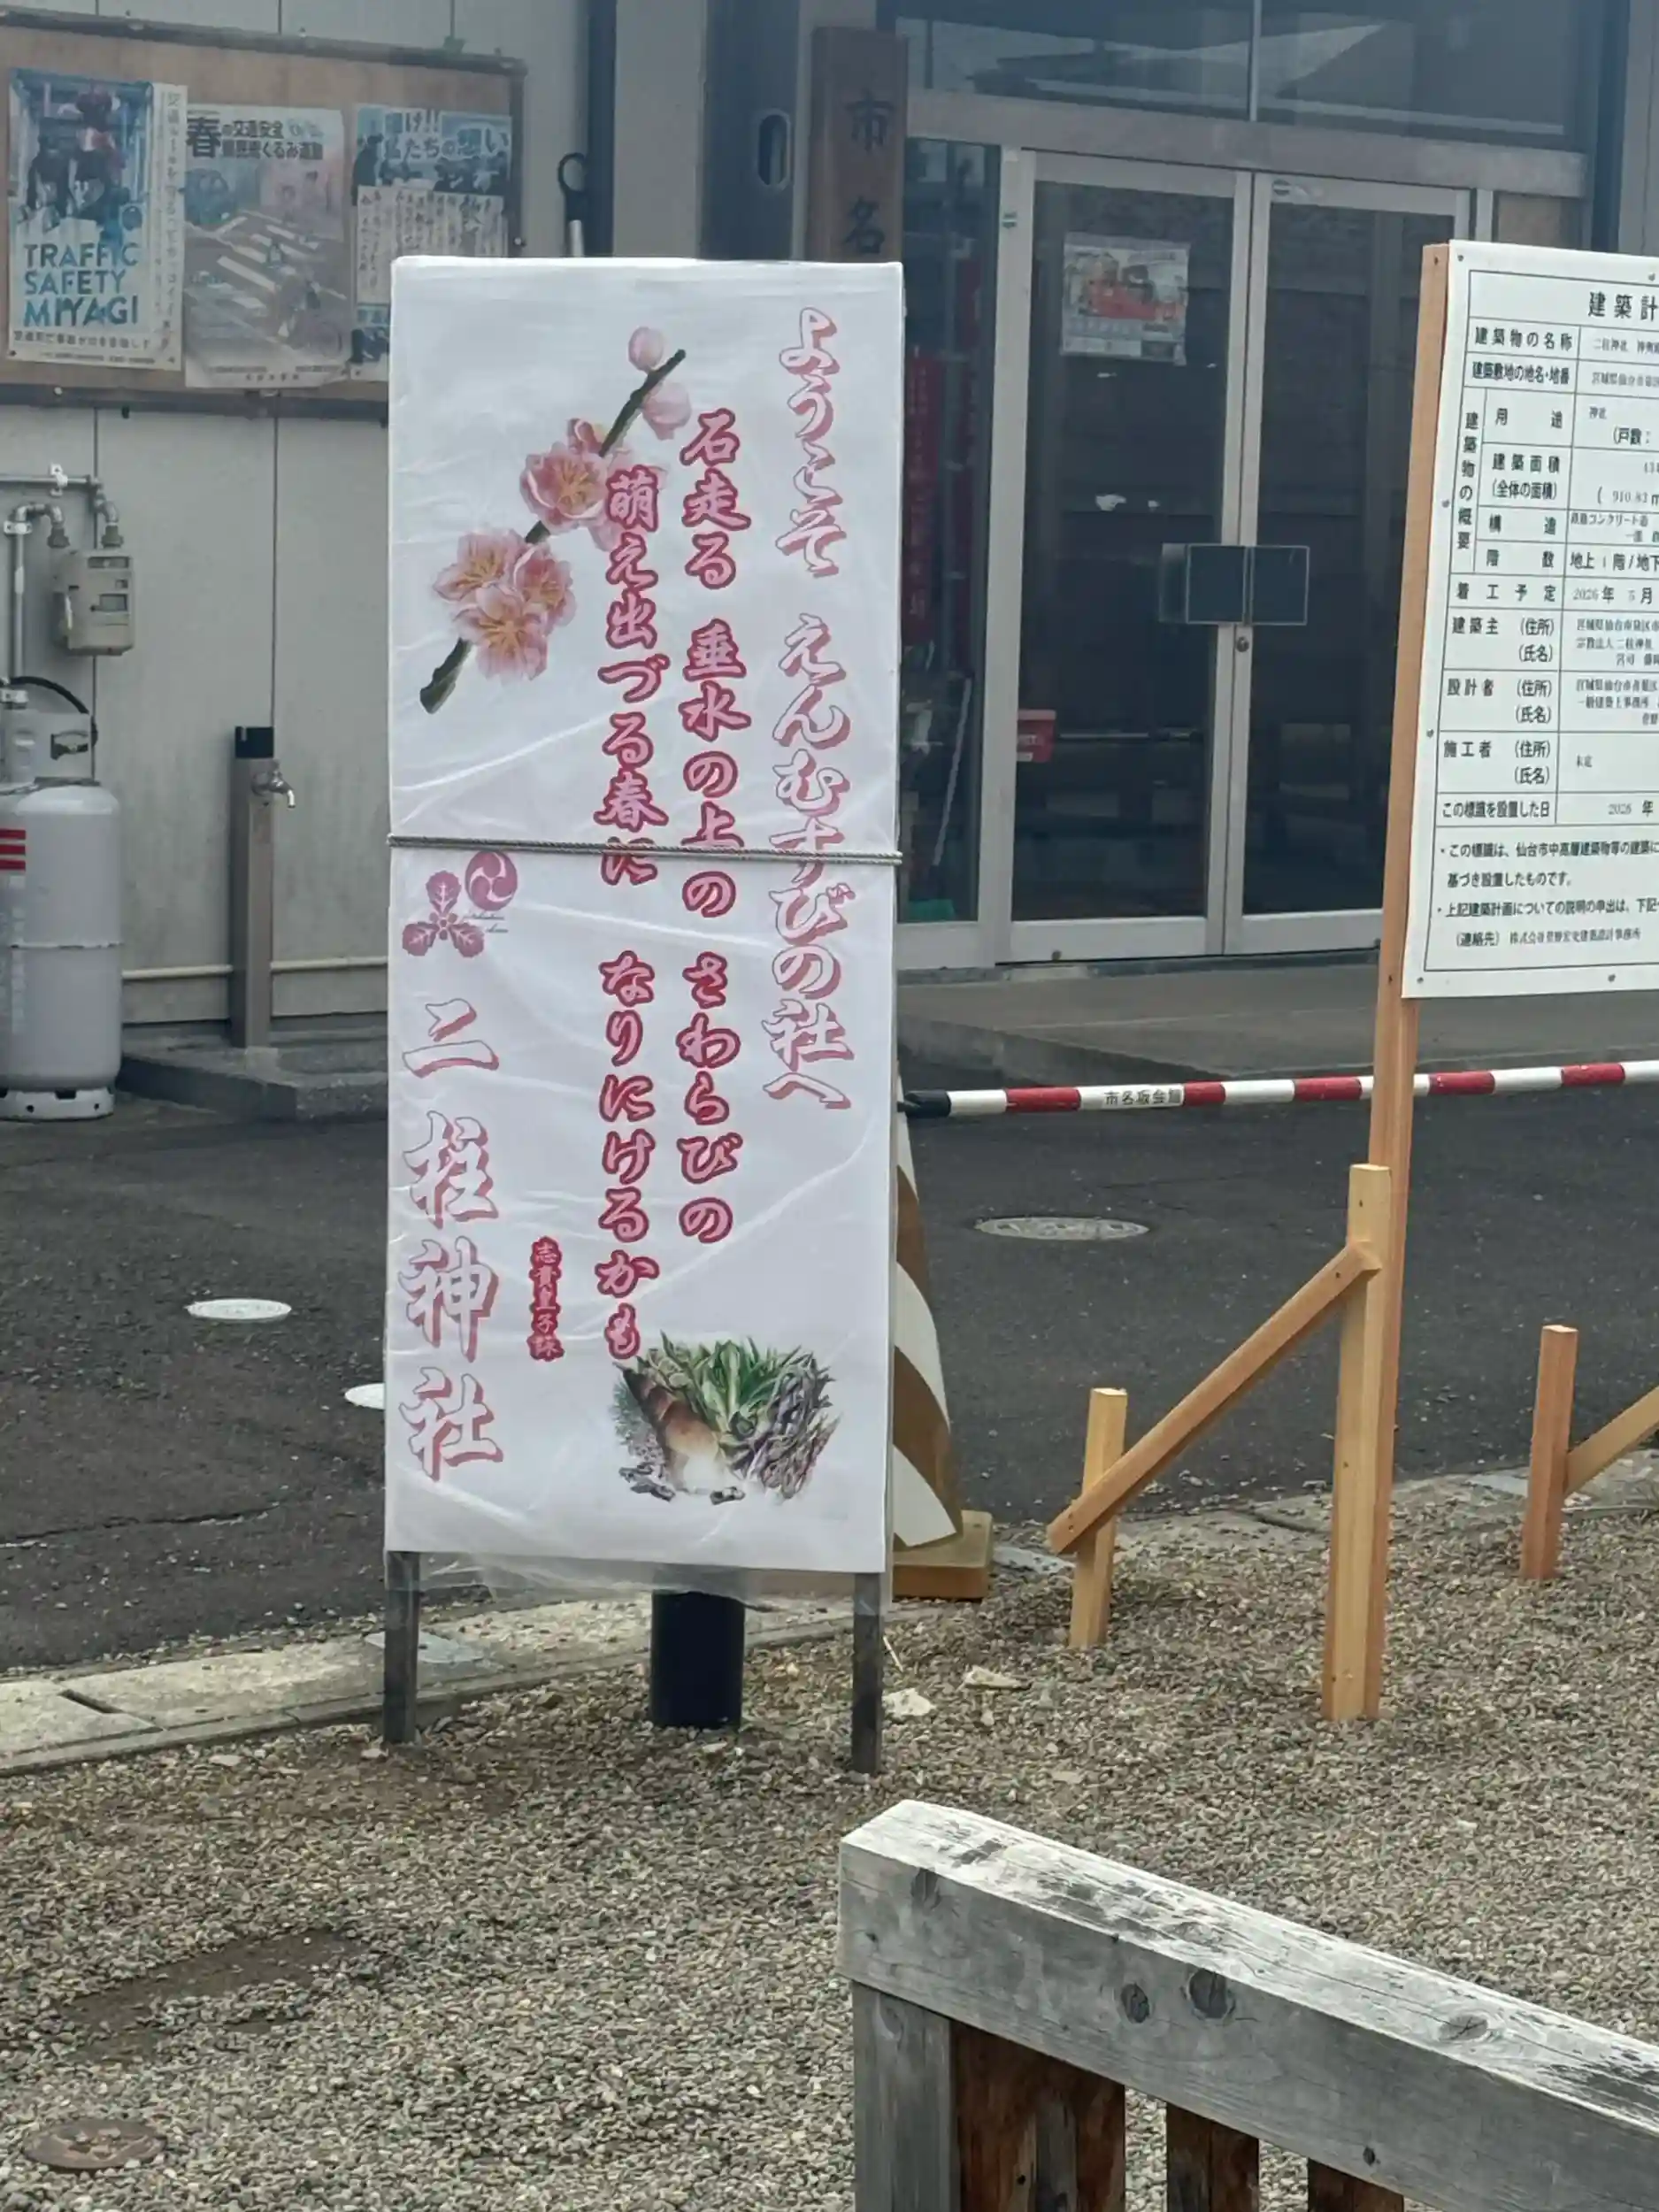 ようこそ えんむすびの社へ
石走る 垂水の上の さわらびの
萌え出づる春に なりにけるかも
志貴皇子詠
二柱神社
TRAFFIC
SAFETY
MIYAGI
春の交通安全
県民総ぐるみ運動
届け!!
私たちの想い
市名
市名坂会館
建築計
建築物の名称
二柱神社
建築敷地の地名・地番
建築物の概要
用途
神社
(戸数:
建築面積
(全体の面積)
( 910.83 m
構造
鉄筋コンクリート造
階数
地上 1 階/地下
着工予定
2026年 5月
建築主 (住所)
(氏名)
宗教法人二柱神社
宮司
設計者 (住所)
(氏名)
一級建築士事務所
施工者 (住所)
(氏名)
未定
この標識を設置した日
2026 年
・この標識は、仙台市中高層建築物等の建築に
基づき設置したものです。
・上記建築計画についての説明の申出は、下記
(連絡先)